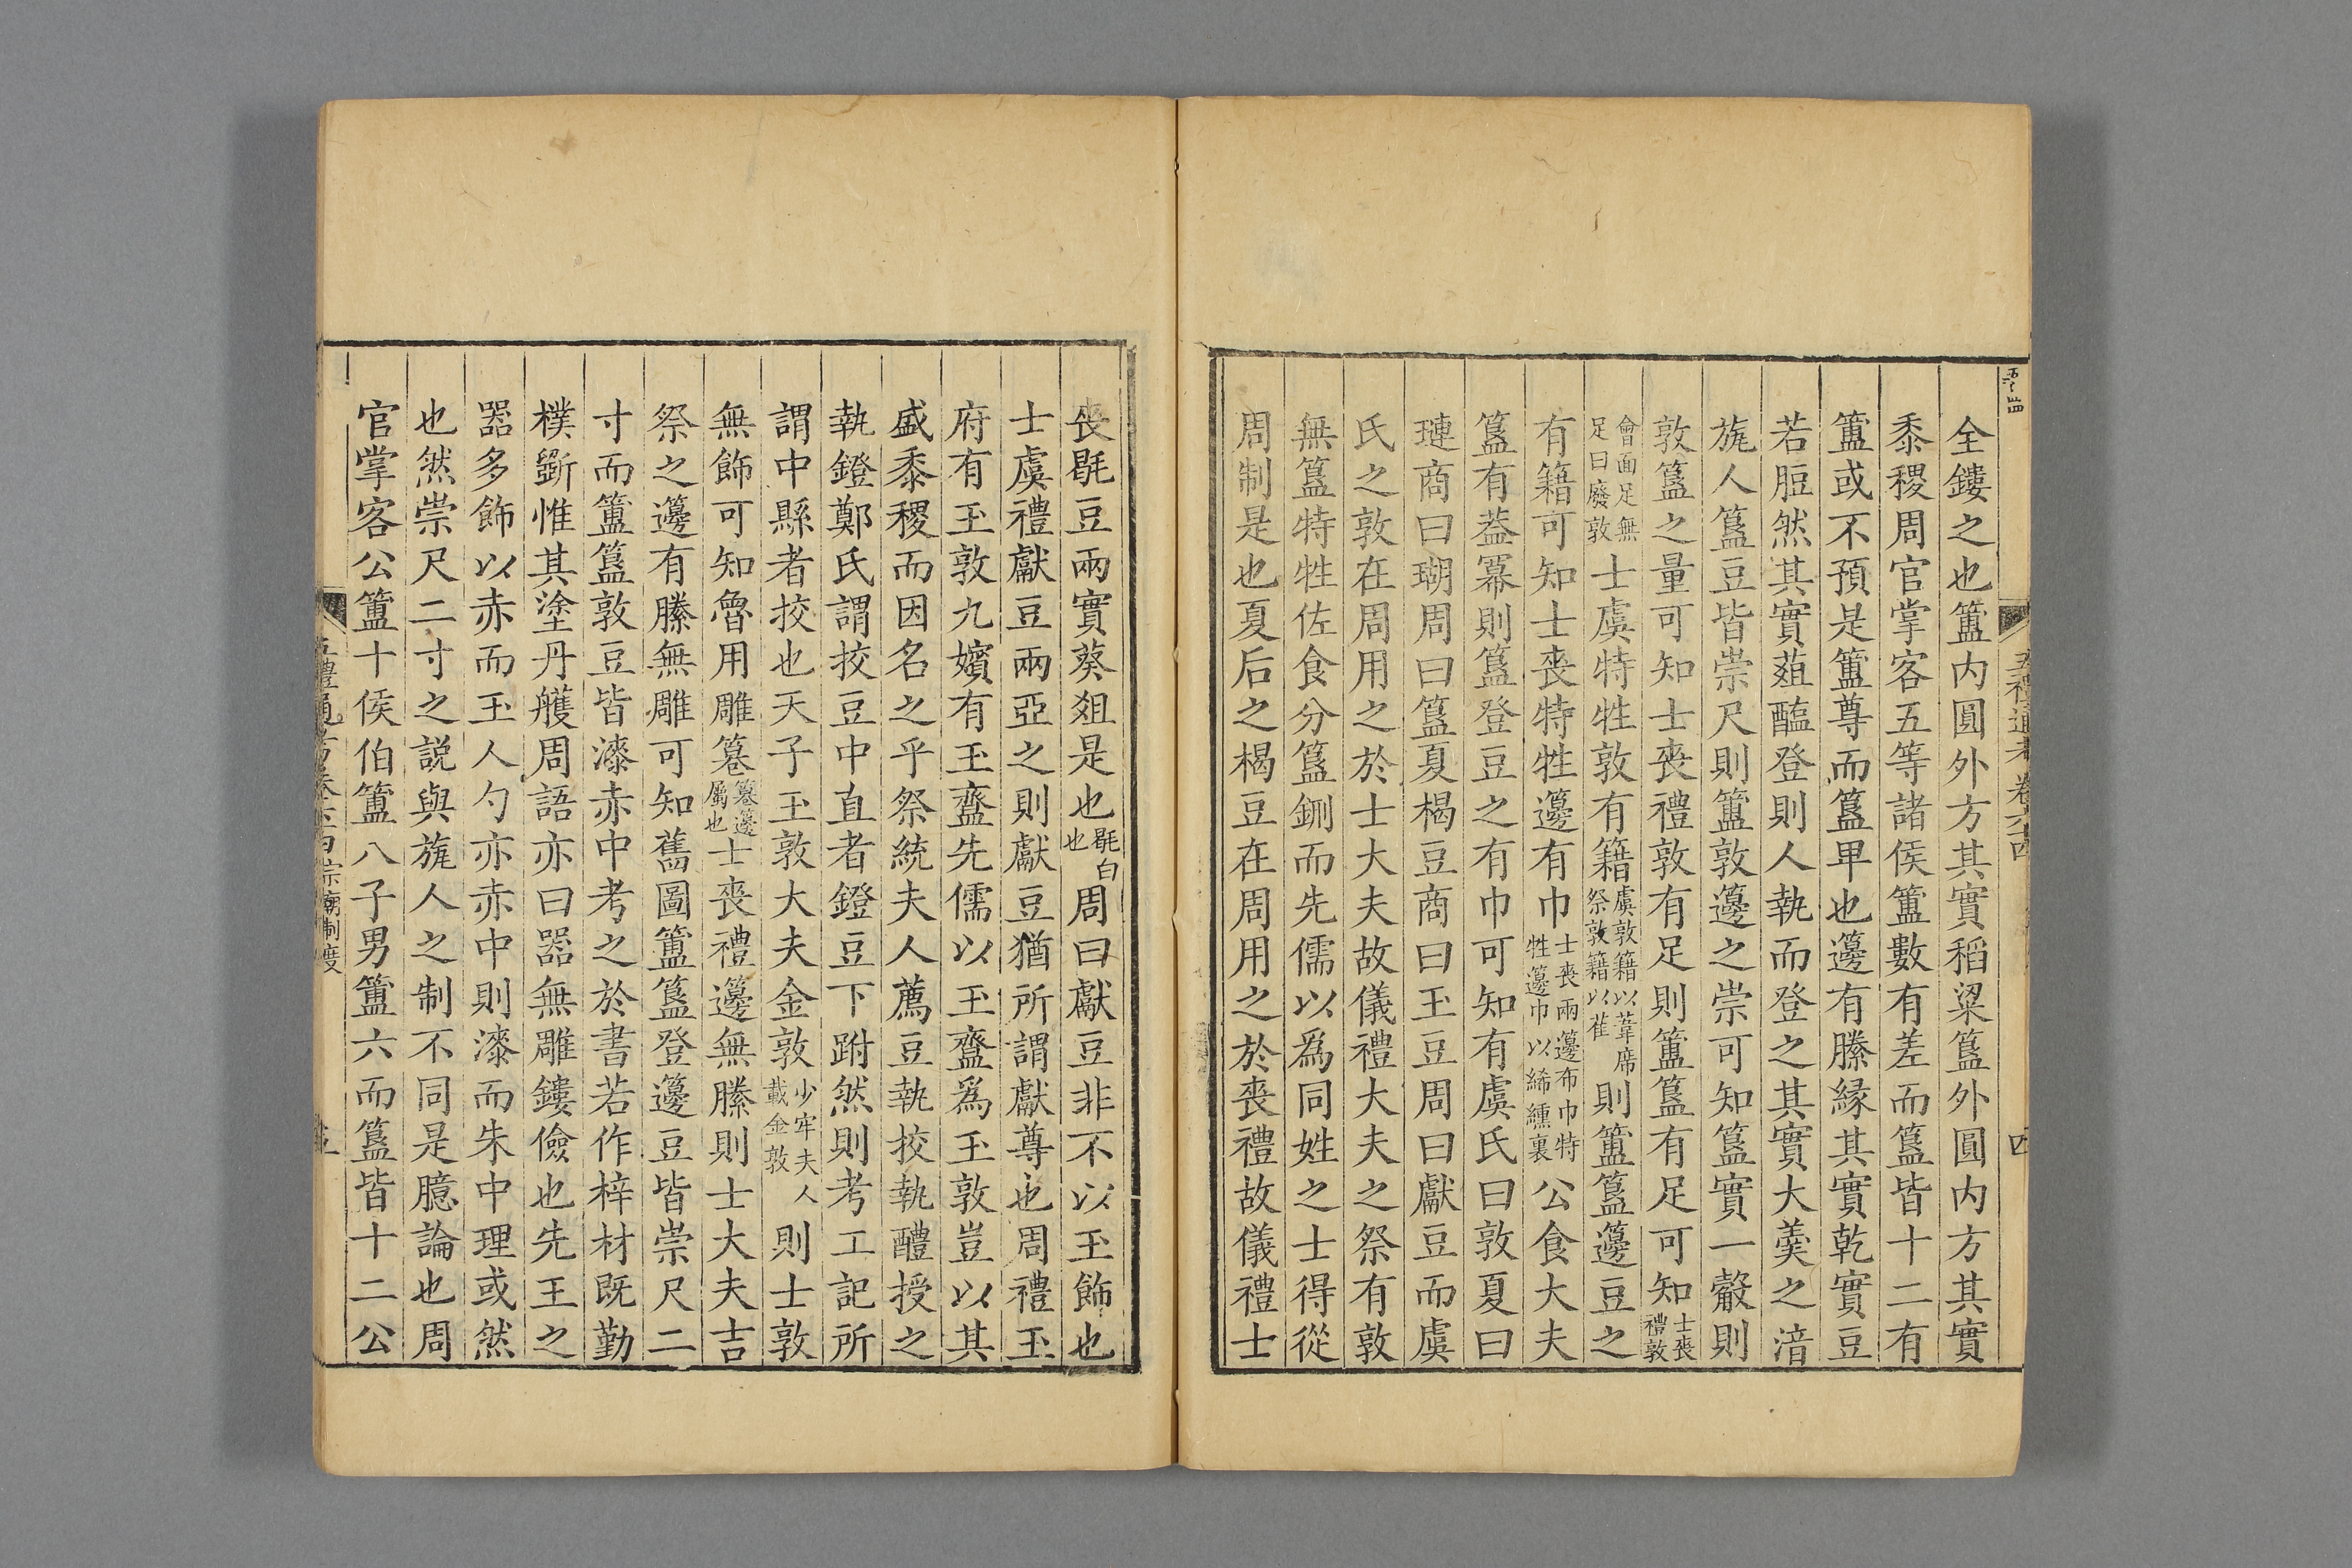 全鏤之也簠内圓外方其實稻粱簋外圓内方其實
黍稷周官掌客五等諸侯簠數有差而簋皆十二有
簠或不預是簠尊而簋卑也籩有縢緣其實乾實豆
若脰然其實菹醢登則人執而登之其實大羹之湇
旊人簋豆皆崇尺則簠敦籩之崇可知簋實一觳則
敦簋之量可知士喪禮敦有足則簠簋有足可知士喪禮敦
會面足無足曰廢敦士虞特牲敦有籍虞敦籍以葦席祭敦籍以萑則簠簋籩豆之
有籍可知士喪特牲籩有巾士喪兩籩布巾特牲籩巾以綌纁裏公食大夫
簋有蓋冪則簋登豆之有巾可知有虞氏曰敦夏曰
璉商曰瑚周曰簋夏楬豆商曰玉豆周曰獻豆而虞
氏之敦在周用之於士大夫故儀禮大夫之祭有敦
無簋特牲佐食分簋鉶而先儒以爲同姓之士得從
周制是也夏后之楬豆在周用之於喪禮故儀禮士
喪毼豆兩實葵爼是也毼白也周曰獻豆非不以玉飾也
士虞禮獻豆兩亞之則獻豆猶所謂獻尊也周禮玉
府有玉敦九嬪有玉齍先儒以玉齍爲玉敦豈以其
盛黍稷而因名之乎祭統夫人薦豆執挍執醴授之
執鐙鄭氏謂挍豆中直者鐙豆下跗然則考工記所
謂中縣者挍也天子玉敦大夫金敦少牢夫人載金敦則士敦
無飾可知魯用雕篹篹籩屬也士喪禮籩無縢則士大夫吉
祭之籩有縢無雕可知舊圖簠簋登籩豆皆崇尺二
寸而簠簋敦豆皆漆赤中考之於書若作梓材既勤
樸斵惟其塗丹雘周語亦曰器無雕鏤儉也先王之
器多飾以赤而玉人勺亦赤中則漆而朱中理或然
也然崇尺二寸之説與旊人之制不同是臆論也周
官掌客公簠十侯伯簠八子男簠六而簋皆十二公